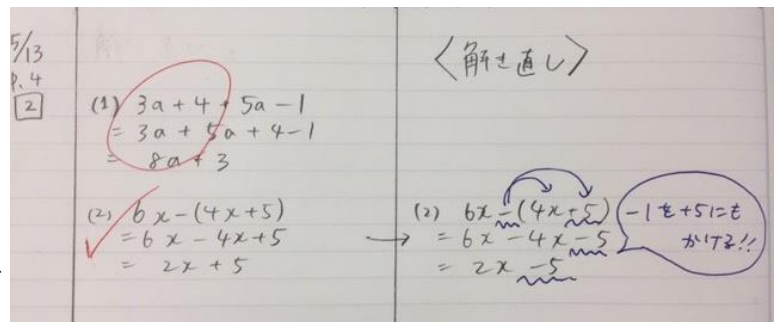 5/13
P.4
2
(1) 3a + 4 + 5a - 1
= 3a + 5a + 4 - 1
= 8a + 3
(2) 6x - (4x + 5)
= 6x - 4x + 5
= 2x + 5
〈解き直し〉
(2) 6x - (4x + 5)
= 6x - 4x - 5
= 2x - 5
-1を+5にも
かける!!